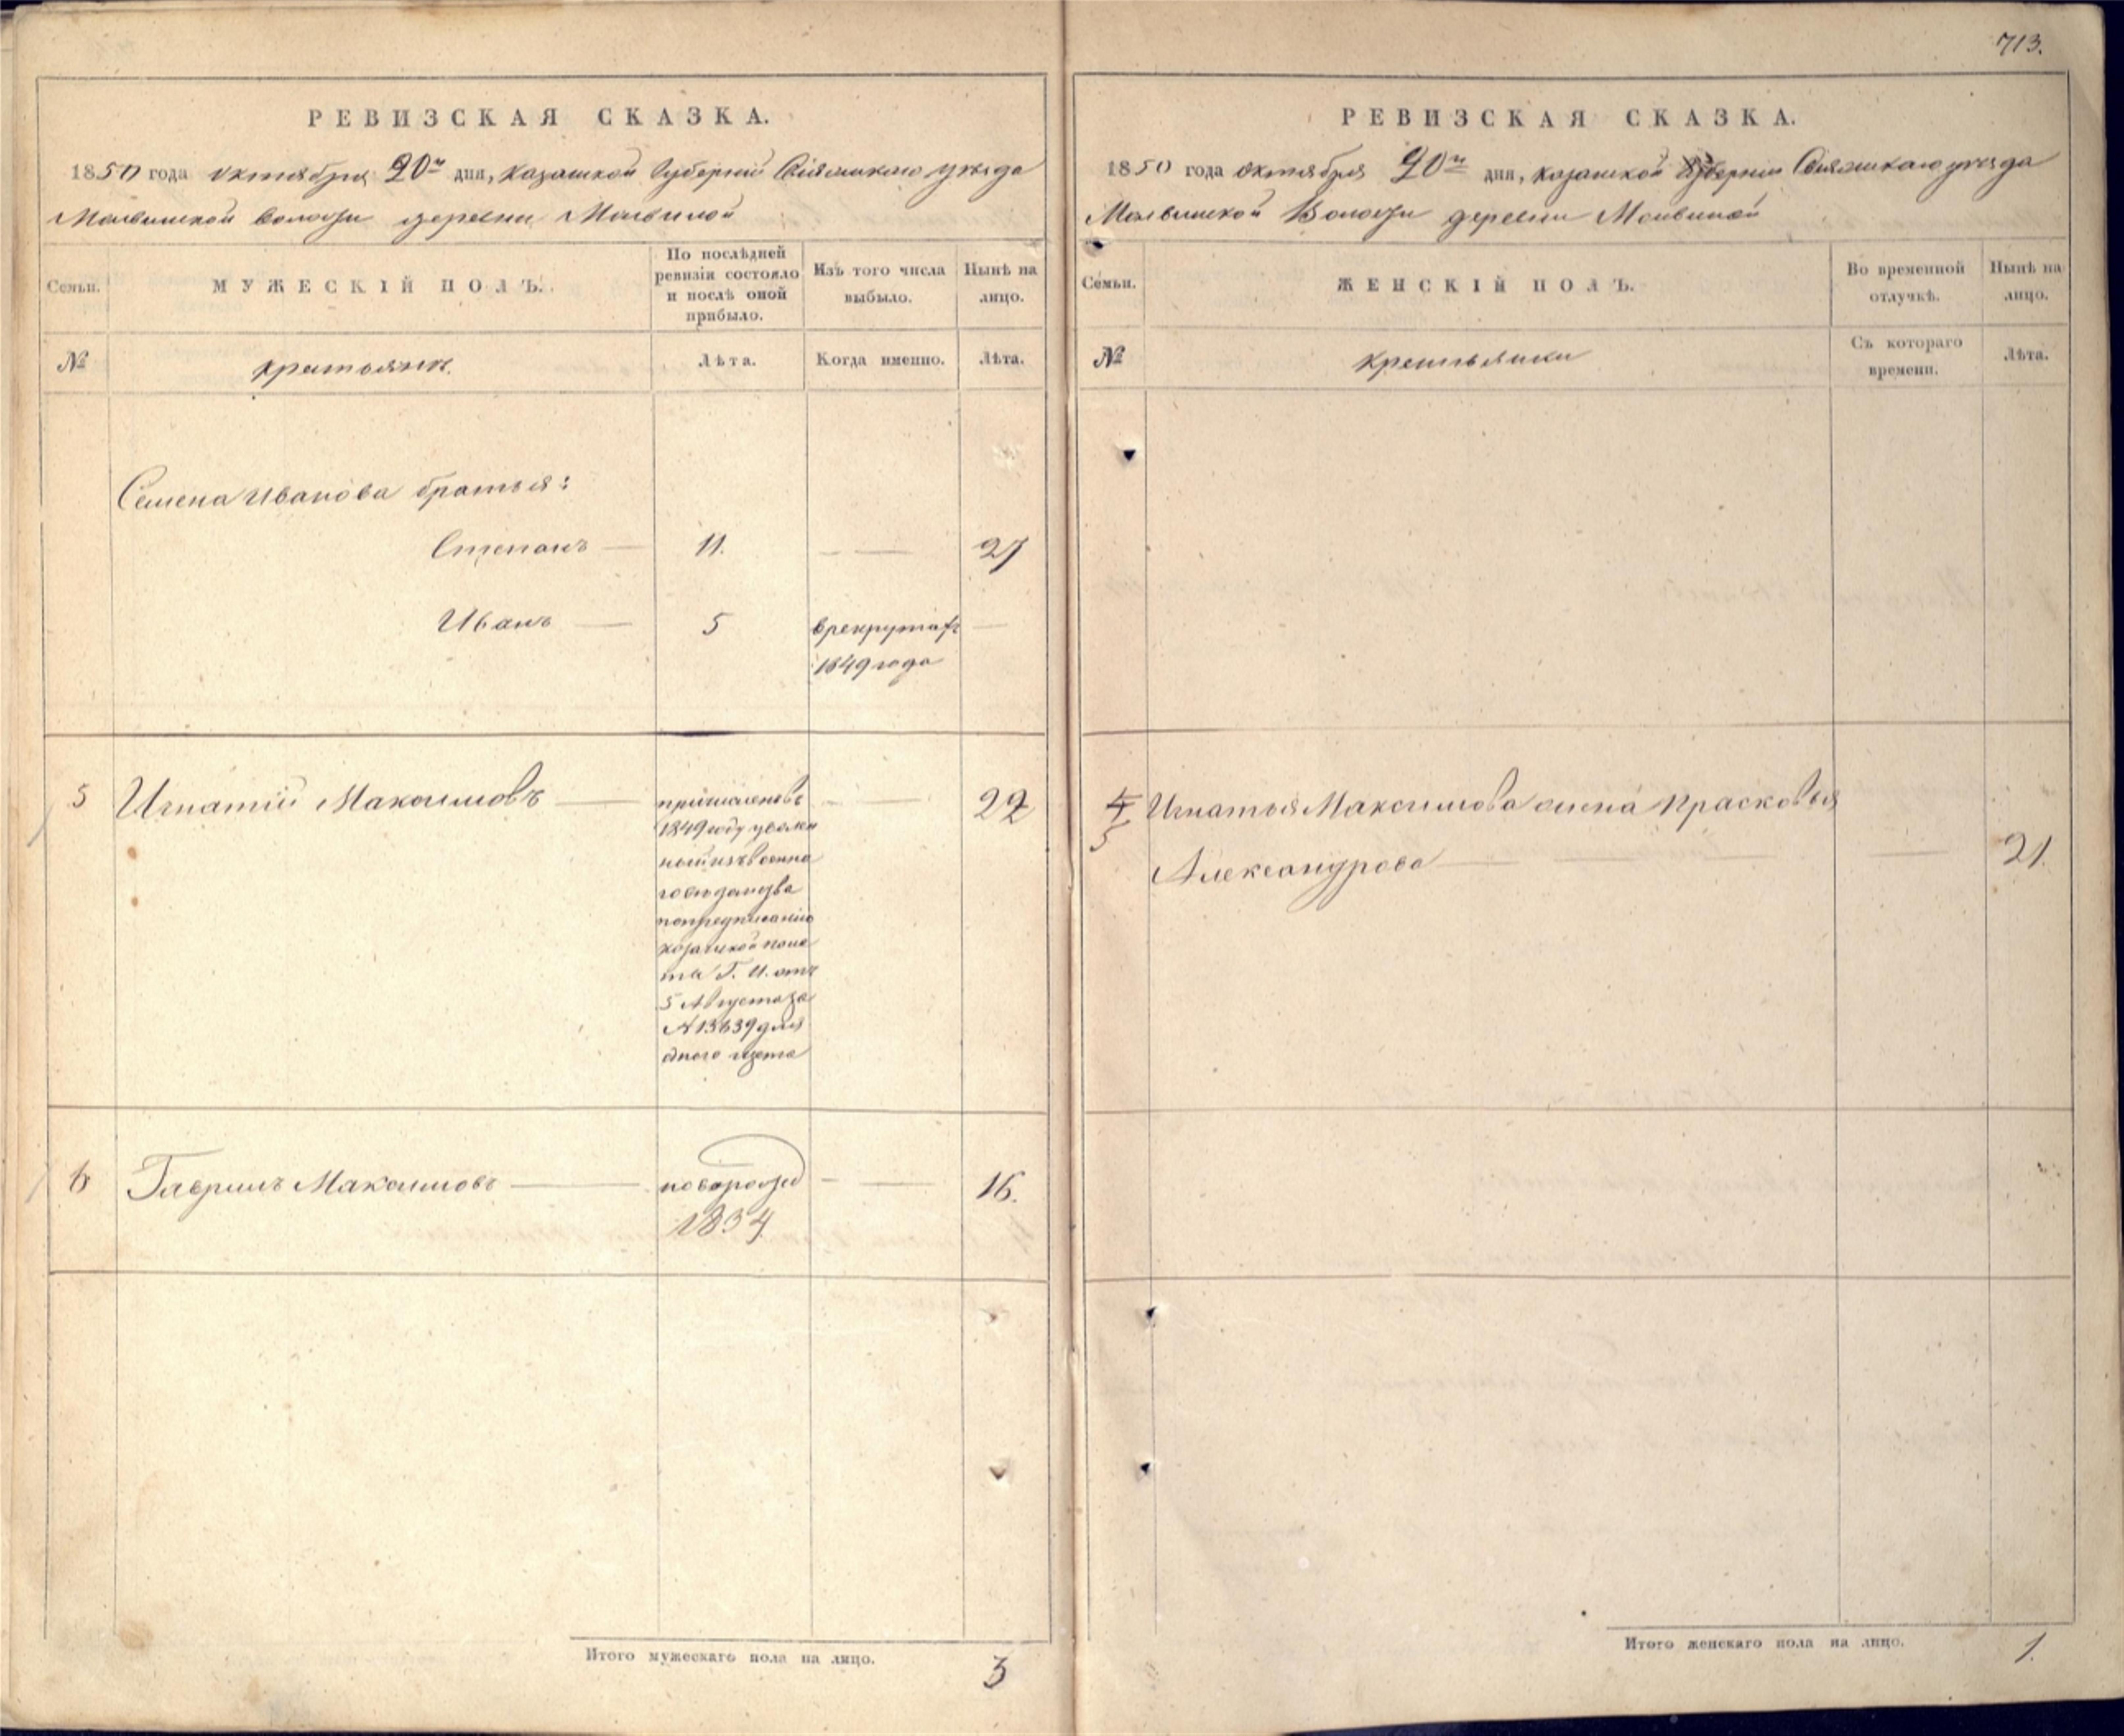 713.
РЕВИЗСКАЯ СКАЗКА.
1850 года октября 20го дня, казанской губернии Свіяжскаго уѣзда
Молвинской волости деревни Молвиной
Семьи.
МУЖЕСКІЙ ПОЛЪ.
По послѣдней ревизіи состояло и послѣ оной прибыло.
Изъ того числа выбыло.
Нынѣ на лицо.
№
крестьянъ.
Лѣта.
Когда именно.
Лѣта.
Семена Иванова братья:
Степанъ — 11. — — 27
Иванъ — 5 в рекрутахъ —
1849 года
5 Игнатій Максимовъ — — 22
1849 году уволен
ной изъ военна
по предписанію
казанской пала
та Г. И. отъ
5 Августа за
№ 13639 для
одного щета
6 Гаврилъ Максимовъ — новорожд — — 16.
1834
Итого мужескаго пола на лицо. 3
РЕВИЗСКАЯ СКАЗКА.
1850 года октября 20го дня, казанской губерніи Свіяжскаго уѣзда
Молвинской Волости деревни Молвиной
Семьи.
ЖЕНСКІЙ ПОЛЪ.
Во временной отлучкѣ.
Нынѣ на лицо.
№
крестьянки
Съ котораго времени.
Лѣта.
4 Игнатья Максимова жена Прасковья
5 Александрова — — 21.
Итого женскаго пола на лицо. 1.